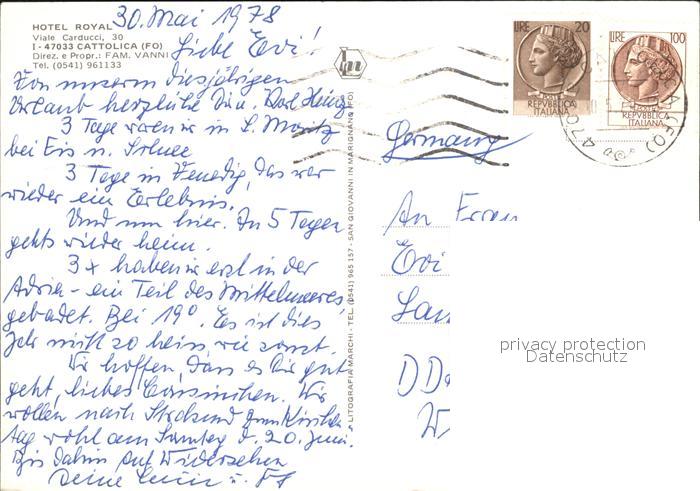 30. Mai 1978
HOTEL ROYAL
Viale Carducci, 30
I - 47033 CATTOLICA (FO)
Direz. e Propr.: FAM. VANNI
Tel. (0541) 961133
Liebe Evi!
Von unserem diesjährigen
Urlaub herzliche
3 Tage waren wir in S. Moritz
bei Eis u. Schnee
3 Tage in Venedig, das war
wieder ein Erlebnis.
Und nun hier. In 5 Tagen
gehts wieder heim.
3 x haben wir erst in der
Adria - ein Teil des Mittelmeeres,
gebadet. Bei 19°. Es ist dies
Jahr nicht so heiss wie sonst.
Wir hoffen, dass es Dir gut
geht, liebes Cousinchen. Wir
wollen nach Stralsund zum Kirchen-
tag wohl am Samstag d. 20. Juni.
Bis dahin auf Wiedersehen
Deine u.
LITOGRAFIA MARCHI - TEL. (0541) 965 157 - SAN GIOVANNI IN MARIGNANO (FO)
LIRE 20
REPVBBLICA
ITALIANA
LIRE 100
REPVBBLICA
ITALIANA
Germany
An Frau
Evi
privacy protection
Datenschutz